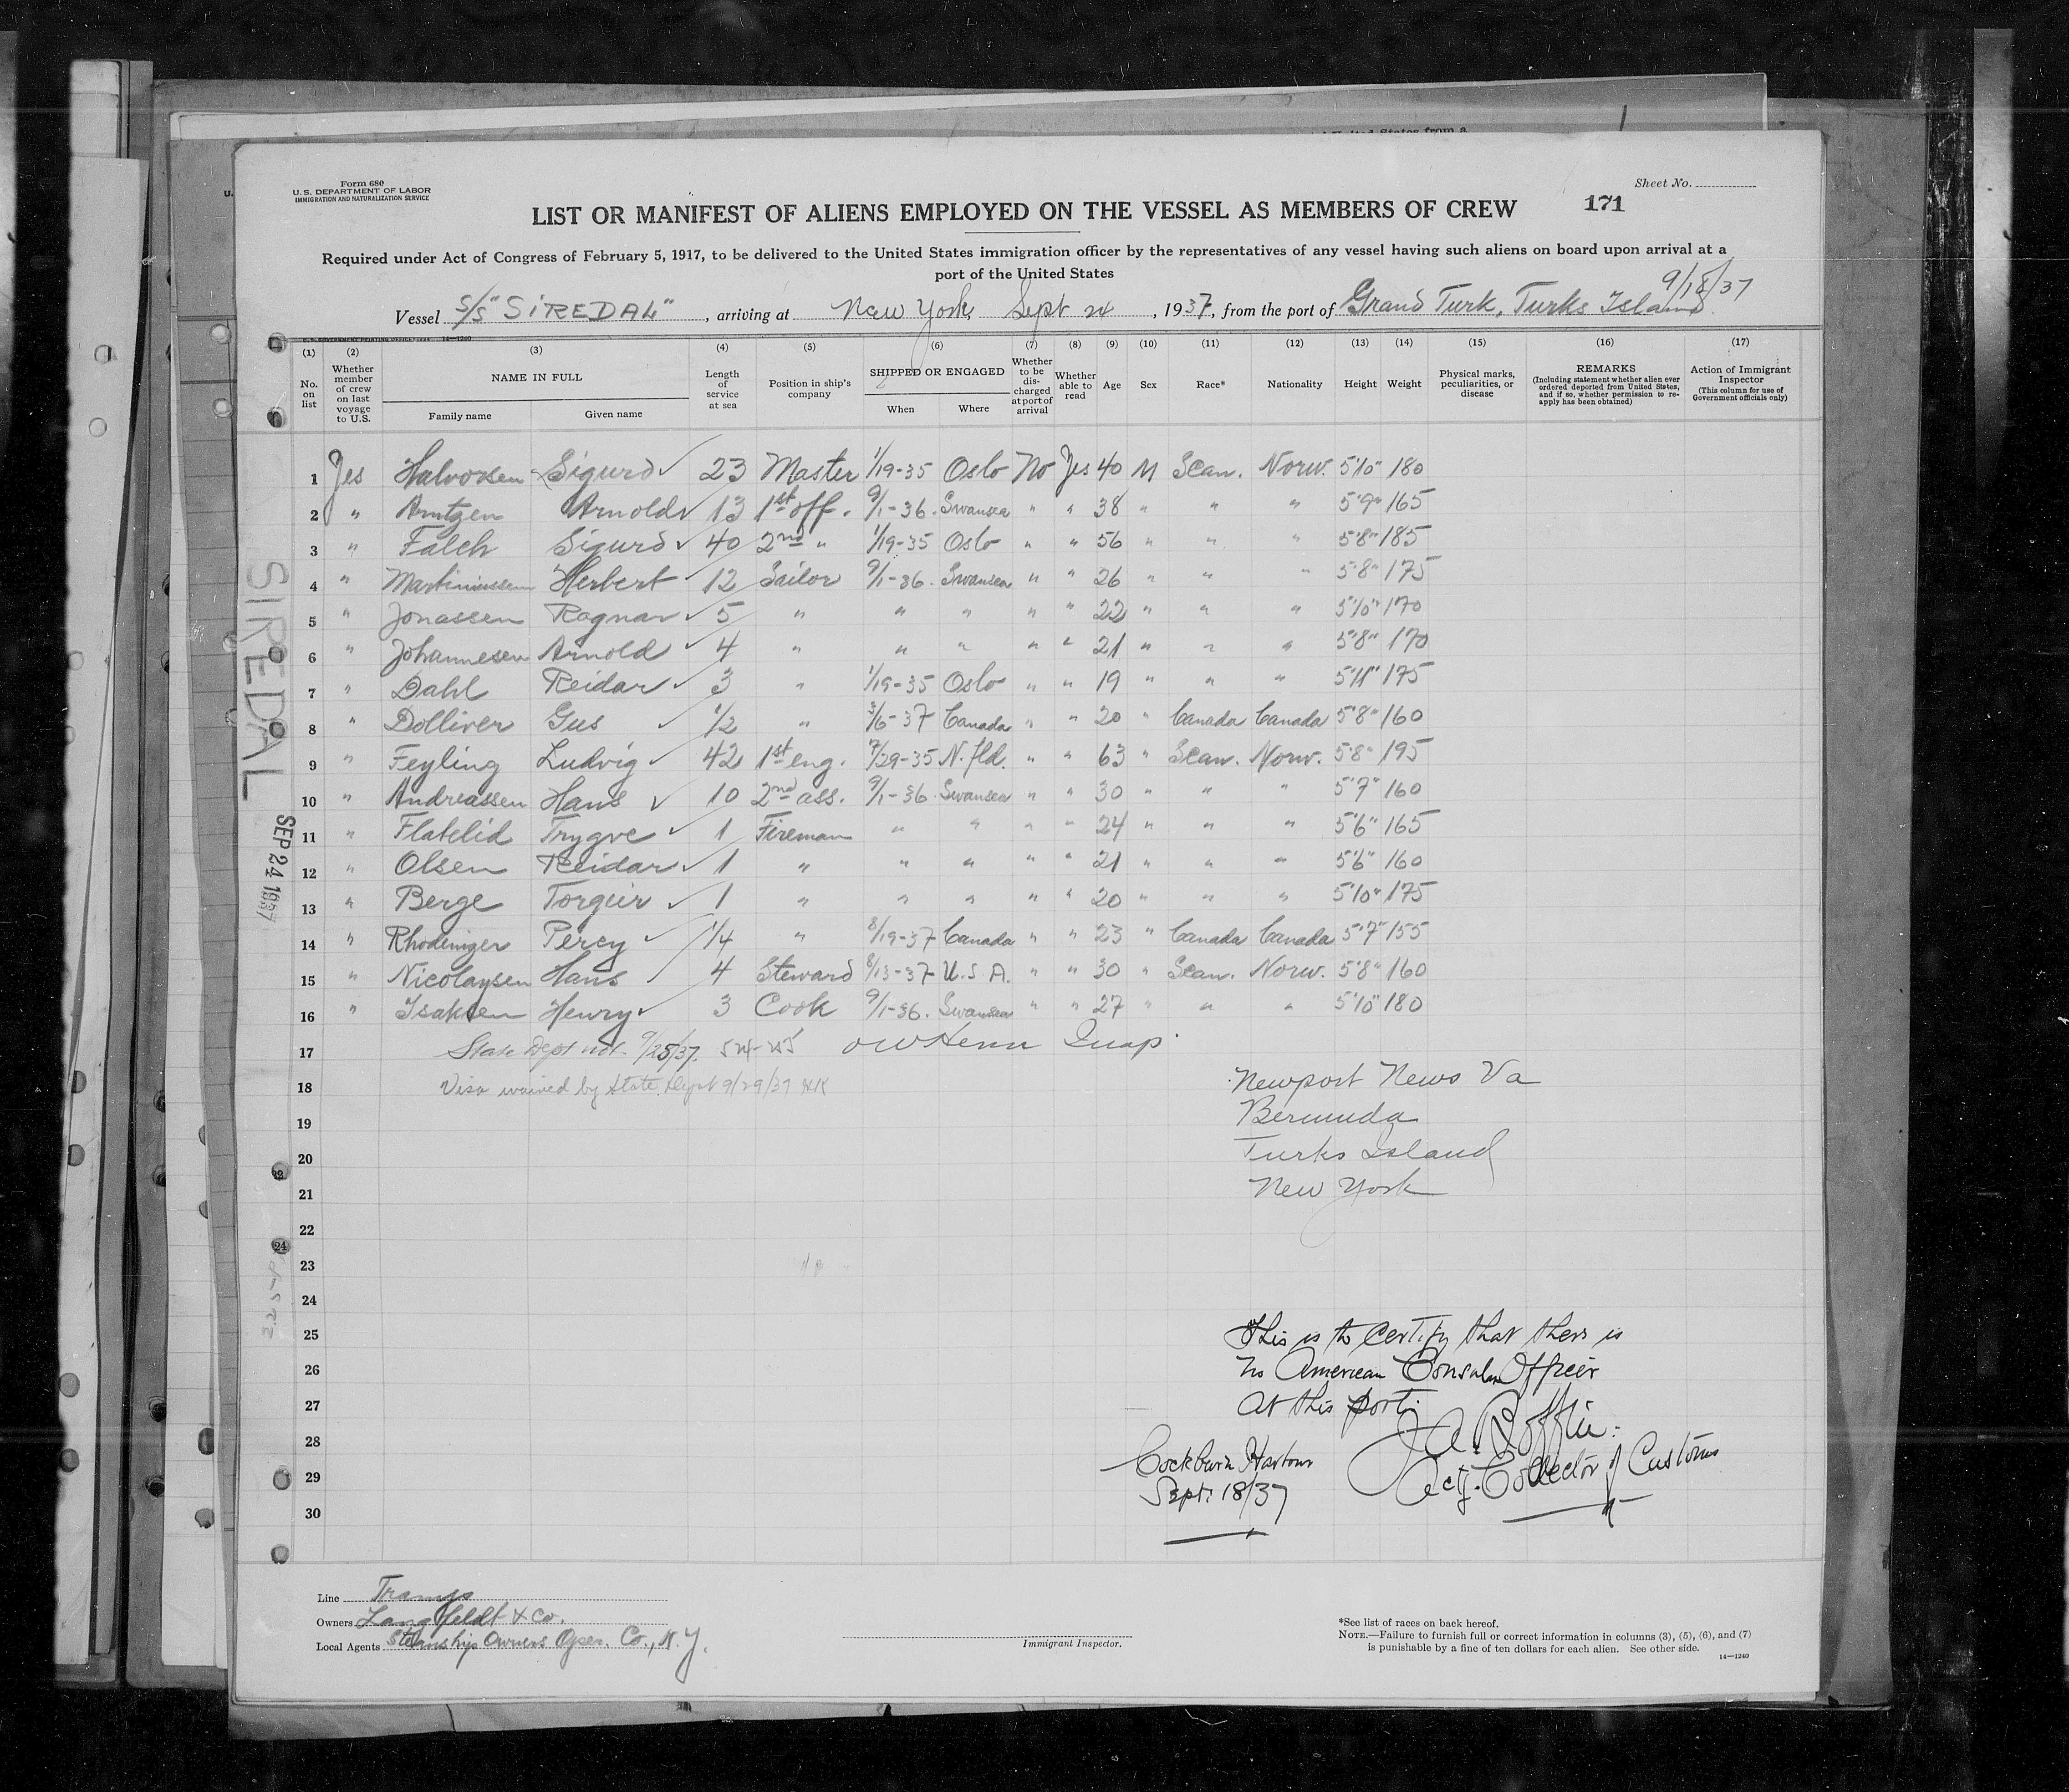 Form 680
U. S. DEPARTMENT OF LABOR
IMMIGRATION AND NATURALIZATION SERVICE
Sheet No.
LIST OR MANIFEST OF ALIENS EMPLOYED ON THE VESSEL AS MEMBERS OF CREW 171
Required under Act of Congress of February 5, 1917, to be delivered to the United States immigration officer by the representatives of any vessel having such aliens on board upon arrival at a
port of the United States
9/18/37
Vessel S/S "SIREDAL", arriving at New York, Sept 24, 1937, from the port of Grand Turk, Turks Island
14—1240
(1) (2) (3) (4) (5) (6) (7) (8) (9) (10) (11) (12) (13) (14) (15) (16) (17)
No. on list
Whether member of crew on last voyage to U.S.
NAME IN FULL
Family name Given name
Length of service at sea
Position in ship's company
SHIPPED OR ENGAGED
When Where
Whether to be discharged at port of arrival
Whether able to read
Age
Sex
Race*
Nationality
Height
Weight
Physical marks, peculiarities, or disease
REMARKS
(Including statement whether alien ever ordered deported from United States, and if so, whether permission to reapply has been obtained)
Action of Immigrant Inspector
(This column for use of Government officials only)
1 Yes Halvorsen Sigurd 23 Master 1/19-35 Oslo No Yes 40 M Scan. Norw. 5'10" 180
2 " Arntzen Arnold 13 1st off. 9/1-36. Swansea " " 38 " " " 5'9" 165
3 " Falch Sigurd 40 2nd " 1/19-35 Oslo " " 56 " " " 5'8" 185
4 " Martiniussen Herbert 12 Sailor 9/1-36. Swansea " " 26 " " " 5'8" 175
5 " Jonassen Ragnar 5 " " " " " 22 " " " 5'10" 170
6 " Johannesen Arnold 4 " " " " " 21 " " " 5'8" 170
7 " Dahl Reidar 3 " 1/19-35 Oslo " " 19 " " " 5'11" 175
8 " Dolliver Gus 1/2 " 3/6-37 Canada " " 20 " Canada Canada 5'8" 160
9 " Feyling Ludvig 42 1st eng. 7/29-35 N.fld. " " 63 " Scan. Norw. 5'8" 195
10 " Andreassen Hans 10 2nd ass. 9/1-36 Swansea " " 30 " " " 5'7" 160
11 " Flatelid Trygve 1 Fireman " " " " 24 " " " 5'6" 165
12 " Olsen Reidar 1 " " " " " 21 " " " 5'6" 160
13 " Berge Torgeir 1 " " " " " 20 " " " 5'10" 175
14 " Rhodenizer Percy 1/4 " 8/19-37 Canada " " 23 " Canada Canada 5'7" 155
15 " Nicolaysen Hans 4 Steward 8/13-37 U.S.A. " " 30 " Scan. Norw. 5'8" 160
16 " Isaksen Henry 3 Cook 9/1-36. Swansea " " 27 " " " 5'10" 180
17 State Dept not. 9/25/37. Insp.
18 Visa waived by State Dept 9/29/37 Newport News Va
19 Bermuda
20 Turks Island
21 New York
22
23
24
25 This is to certify that there is
26 no American Consular Officer
27 at this port.
28 Cockburn Harbour
29 Sept. 18/37 Actg. Collector of Customs
30
SIREDAL
SEP 24 1937
24
Line Tramps
Owners Langfeldt & Co.
Local Agents Steamship Owners Oper. Co., N.Y.
Immigrant Inspector.
*See list of races on back hereof.
NOTE.—Failure to furnish full or correct information in columns (3), (5), (6), and (7)
is punishable by a fine of ten dollars for each alien. See other side.
14—1240